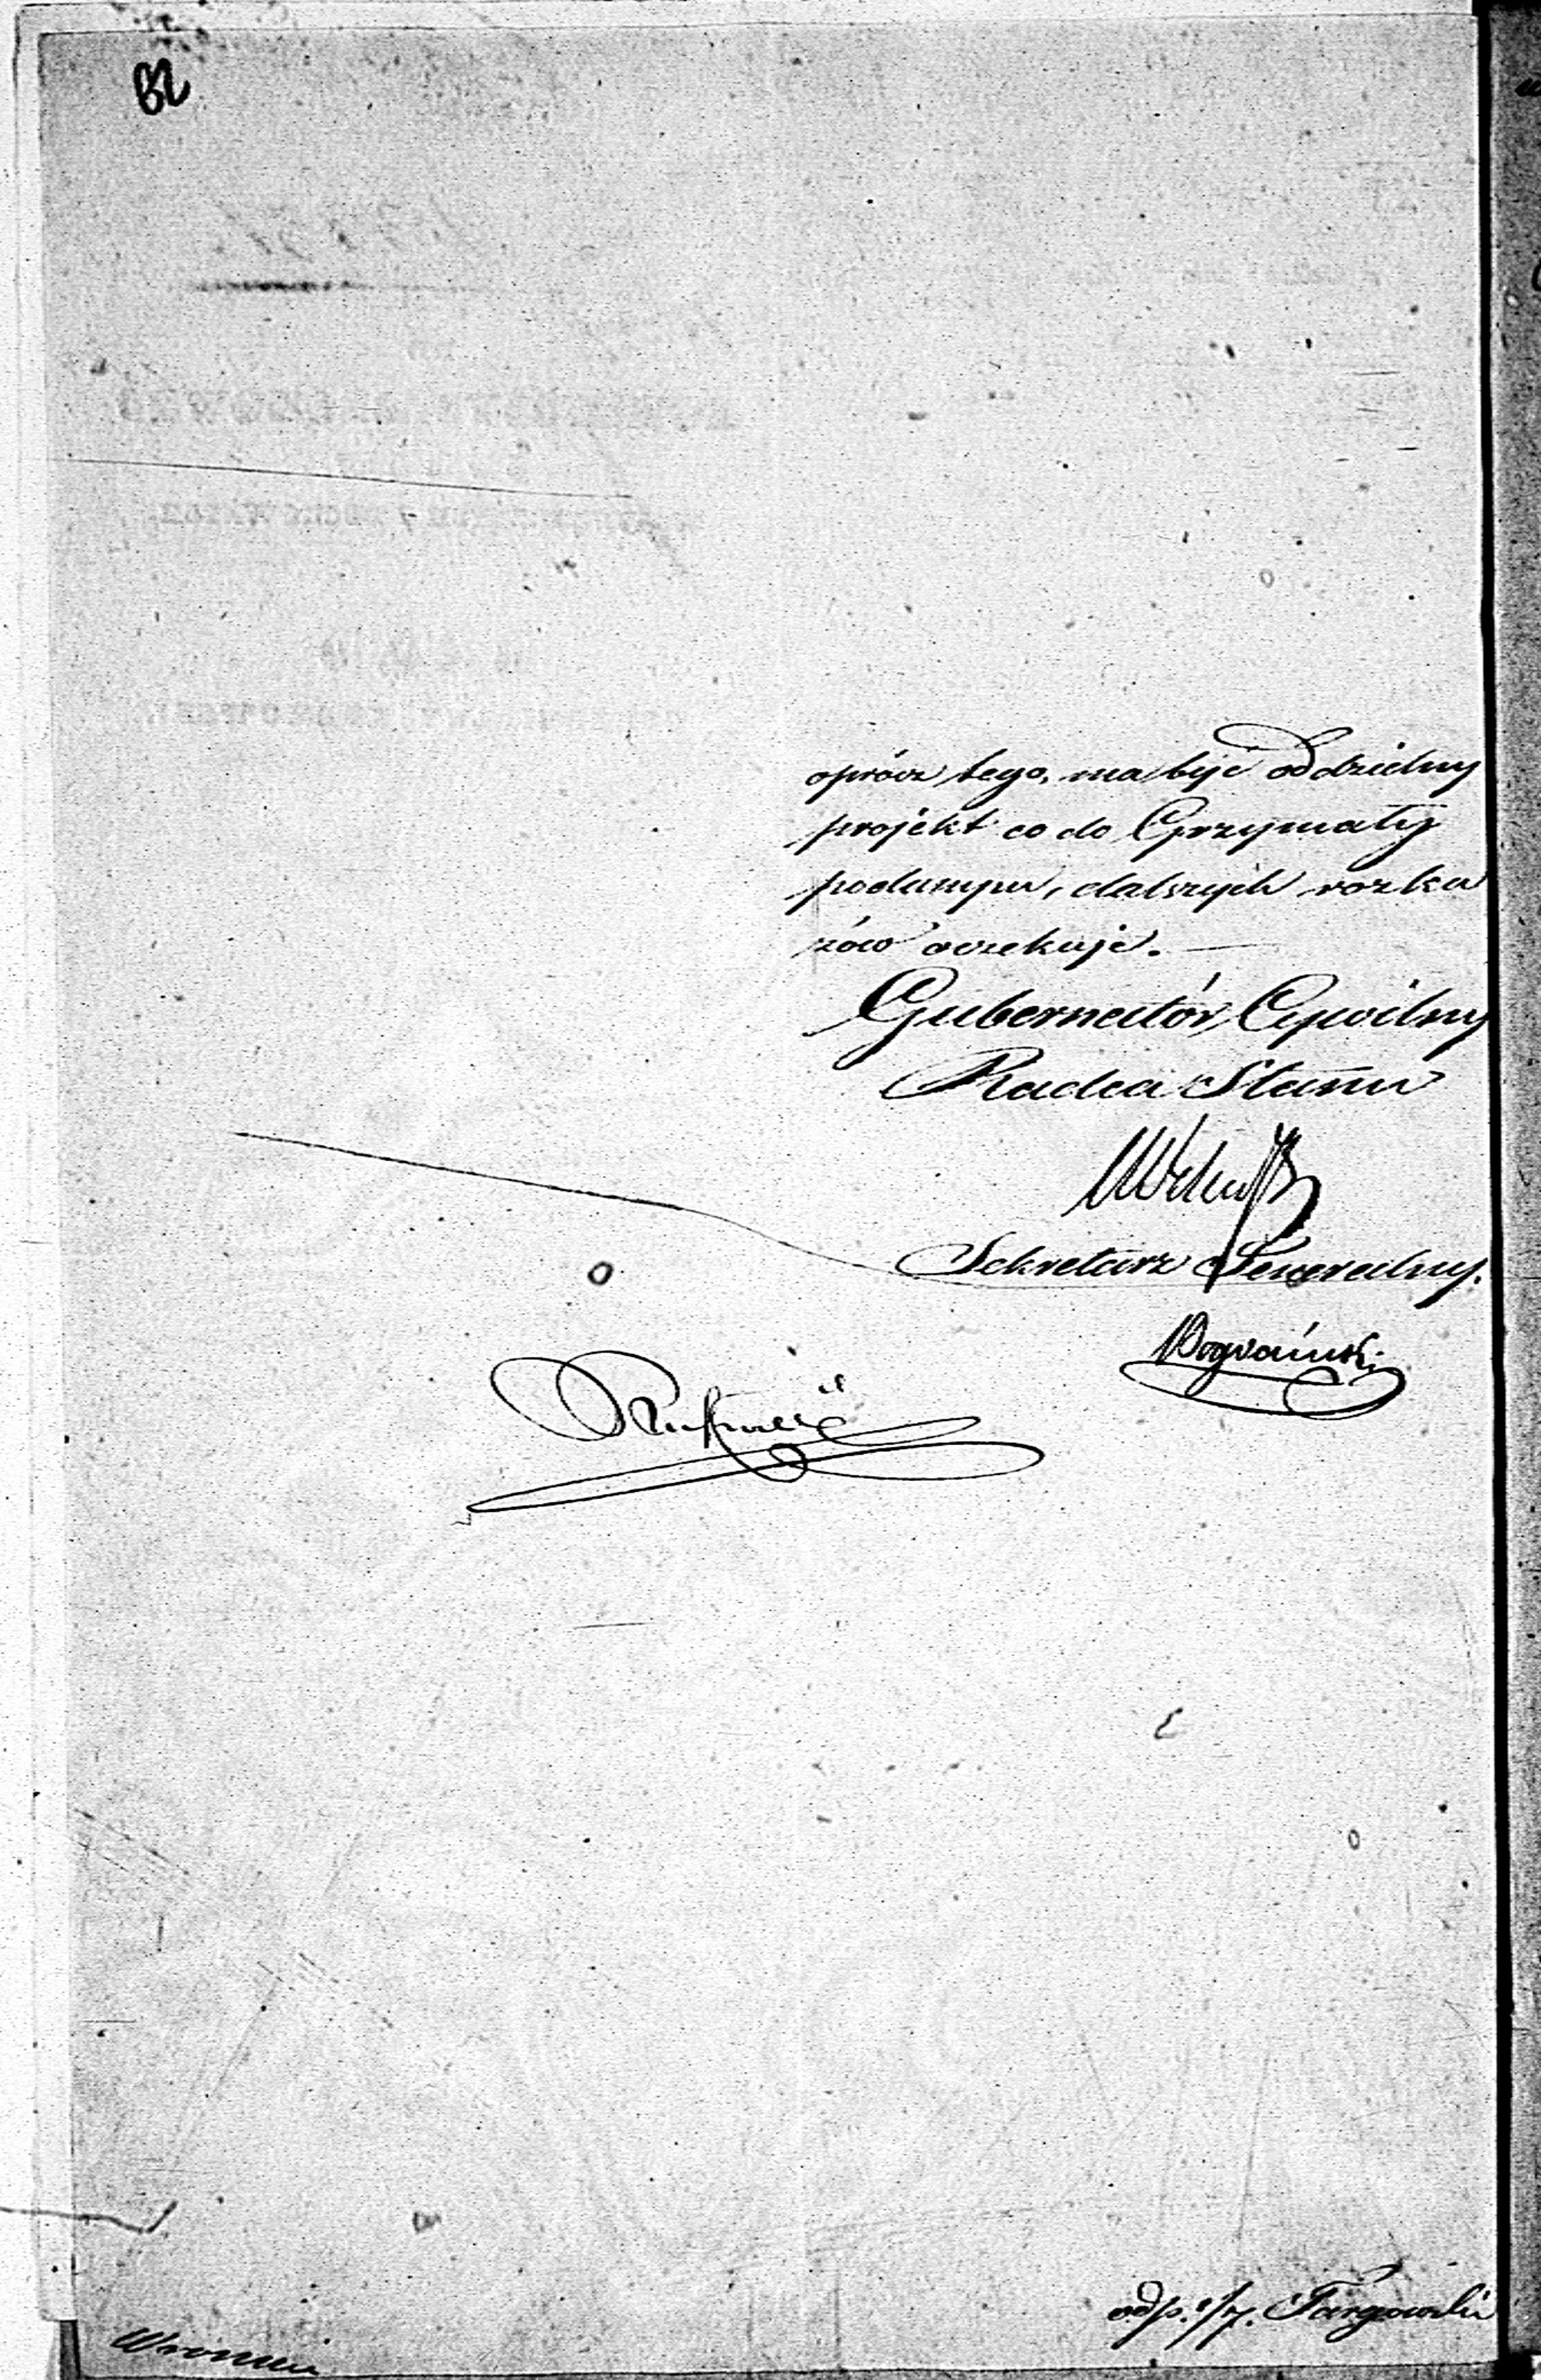 82
oprócz tego, ma być oddzielny
projekt co do Grzymały
podampu, dalszych rozka
zów oczekuje. —
Gubernator, Cywilny
Radca Stanu
Sekretarz Jeneralny.
odp. 1/7. Targowski